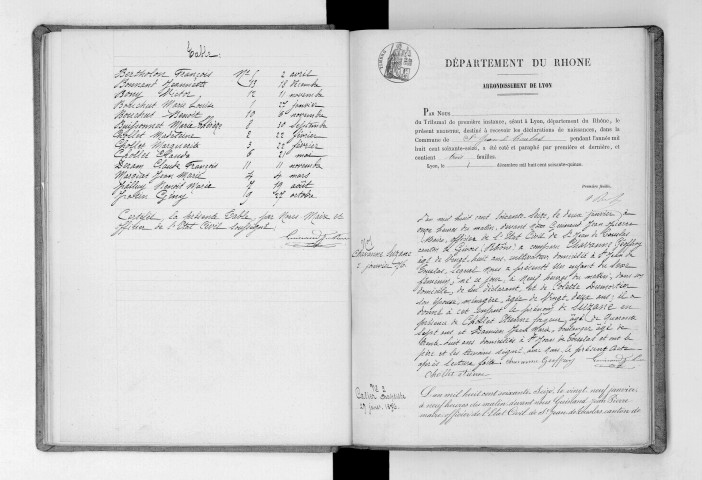 Table
Bertholon François N° 5 2 avril
Bonnand Jeannette 13 18 Décembre
Bony Victor 12 11 novembre
Bouchut Marie Louise 1 27 janvier
Bouchut Benoît 10 6 novembre
Buissonnet Marie 8 10 Septembre
Chollet Madeleine 2 22 février
Chollet Marguerite 3 22 février
Chollet Claude 6 21 mai
Claude François 11 11 novembre
Jean Marie 4 4 mars
Benoit Marie 7 19 août
9 27 octobre
Certifié la présente Table, par Nous Maire et
officier de l'Etat Civil soussigné
DÉPARTEMENT DU RHONE
ARRONDISSEMENT DE LYON
PAR NOUS
du Tribunal de première instance, séant à Lyon, département du Rhône, le
présent annexe, destiné à recevoir les déclarations de naissances, dans la
Commune de St Jean de Touslas pendant l'année mil
huit cent soixante-seize, a été coté et paraphé par première et dernière, et
contient trois feuilles.
Lyon, le décembre mil huit cent soixante-quinze.
Première feuille,
N° 1
Chavanne Suzane
2 janvier 76.
L'an mil huit cent soixante Seize, le deux janvier à
onze heures du matin, devant nous Guinand Jean Pierre
Maire, officier de l'Etat Civil de St Jean de Touslas
canton de Givors, (Rhône) a comparu Chavanne Geoffray
âgé de vingt huit ans, cultivateur domicilié à St Jean de
Touslas, lequel nous a présenté un enfant du Sexe
féminin, né ce jour, à neuf heures du matin, dans son
domicile, de lui déclarant, et de Colette Dumortier
son épouse, ménagère, âgée de vingt deux ans; il a
donné à cet enfant le prénom de Suzane en
présence de Chollet Etienne âgé de quarante
sept ans, et Jean Marie, boulanger âgé de
trente huit ans domiciliés à St Jean de Touslas et ont le
père et les témoins signé avec nous, le présent acte
après lecture faite. Chavanne Geoffray
Chollet Etienne
N° 2
27 janv. 1876.
L'an mil huit cent soixante Seize, le vingt neuf janvier,
à neuf heures du matin devant nous Guinand Jean Pierre
maire, officier de l'Etat Civil de St Jean de Touslas canton de